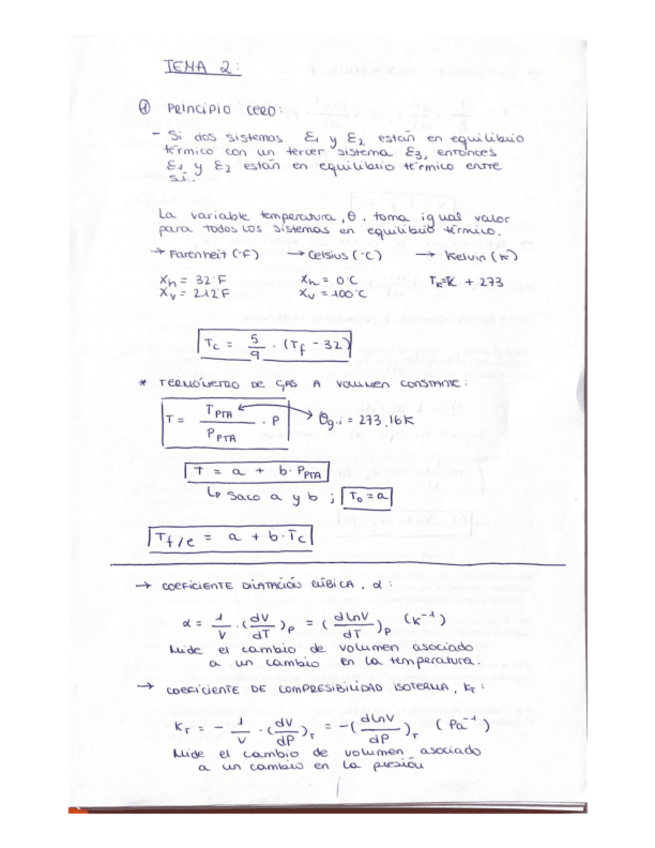 TEMA 2:
① PRINCIPIO CERO:
- Si dos sistemas ε₁ y ε₂ están en equilibrio
térmico con un tercer sistema ε₃, entonces
ε₁ y ε₂ están en equilibrio térmico entre
sí.
La variable temperatura, θ, toma igual valor
para todos los sistemas en equilibrio térmico.
→ Farenheit (°F) → Celsius (°C) → Kelvin (K)
Xh = 32°F Xh = 0°C Tk=Tc + 273
Xv = 212°F Xv = 100°C
Tc = 5/9 · (Tf - 32)
* TERMÓMETRO DE GAS A VOLUMEN CONSTANTE:
T = T_PTA / P_PTA · P ↔ θg.i = 273,16K
T = a + b · P_PTA
↳ Saco a y b ; T₀ = a
T f/e = a + b · Tc
→ COEFICIENTE DILATACIÓN CÚBICA, α:
α = 1/V · (dV/dT)p = (dlnV/dT)p (K⁻¹)
Mide el cambio de volumen asociado
a un cambio en la temperatura.
→ COEFICIENTE DE COMPRESIBILIDAD ISOTERMA, KT:
KT = - 1/V · (dV/dP)T = -(dlnV/dP)T (Pa⁻¹)
Mide el cambio de volumen asociado
a un cambio en la presión